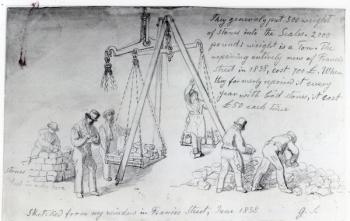 They generally put 300 weight
of stones into the Scales. 2000
pounds weight is a Tonn. The
repairing entirely new of Francis
Street in 1838, cost 700 £. When
they formerly repaired it every
year with Gd stones, it cost
£50 each time
Stones
Sketched from my window in Francis Street, June 1838
G. S.